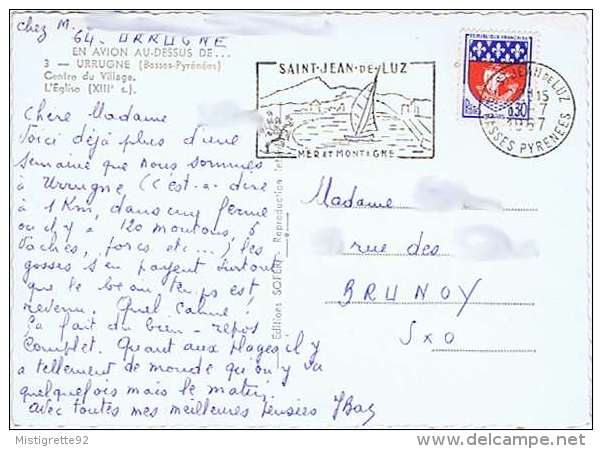 chez M.
64 - URRUGNE
EN AVION AU-DESSUS DE...
3 - URRUGNE (Basses-Pyrénées)
Centre du Village.
L'Église (XIIIe s.).
Chere Madame
Voici déjà plus d'une
semaine que nous sommes
à Urrugne, (c'est-a-dire
à 1 Km, dans une ferme
ou il y a 120 moutons, 6
vaches, porcs etc...) les
gosses s'en payent surtout
que le beau temps est
revenu. Quel calme!
Ça fait du bien - repos
complet. Quant aux plages il y
a tellement de monde que on y va
quelquefois mais le matin.
avec toutes mes meilleures pensées
Editions SOFER - Reproduction
SAINT-JEAN-DE-LUZ
MER ET MONTAGNE
REPUBLIQUE FRANÇAISE
0,30
ST JEAN DE LUZ
15
-7
1967
BASSES PYRENEES
Madame
rue des
BRUNOY
SxO
Mistigrette92
delcampe.net